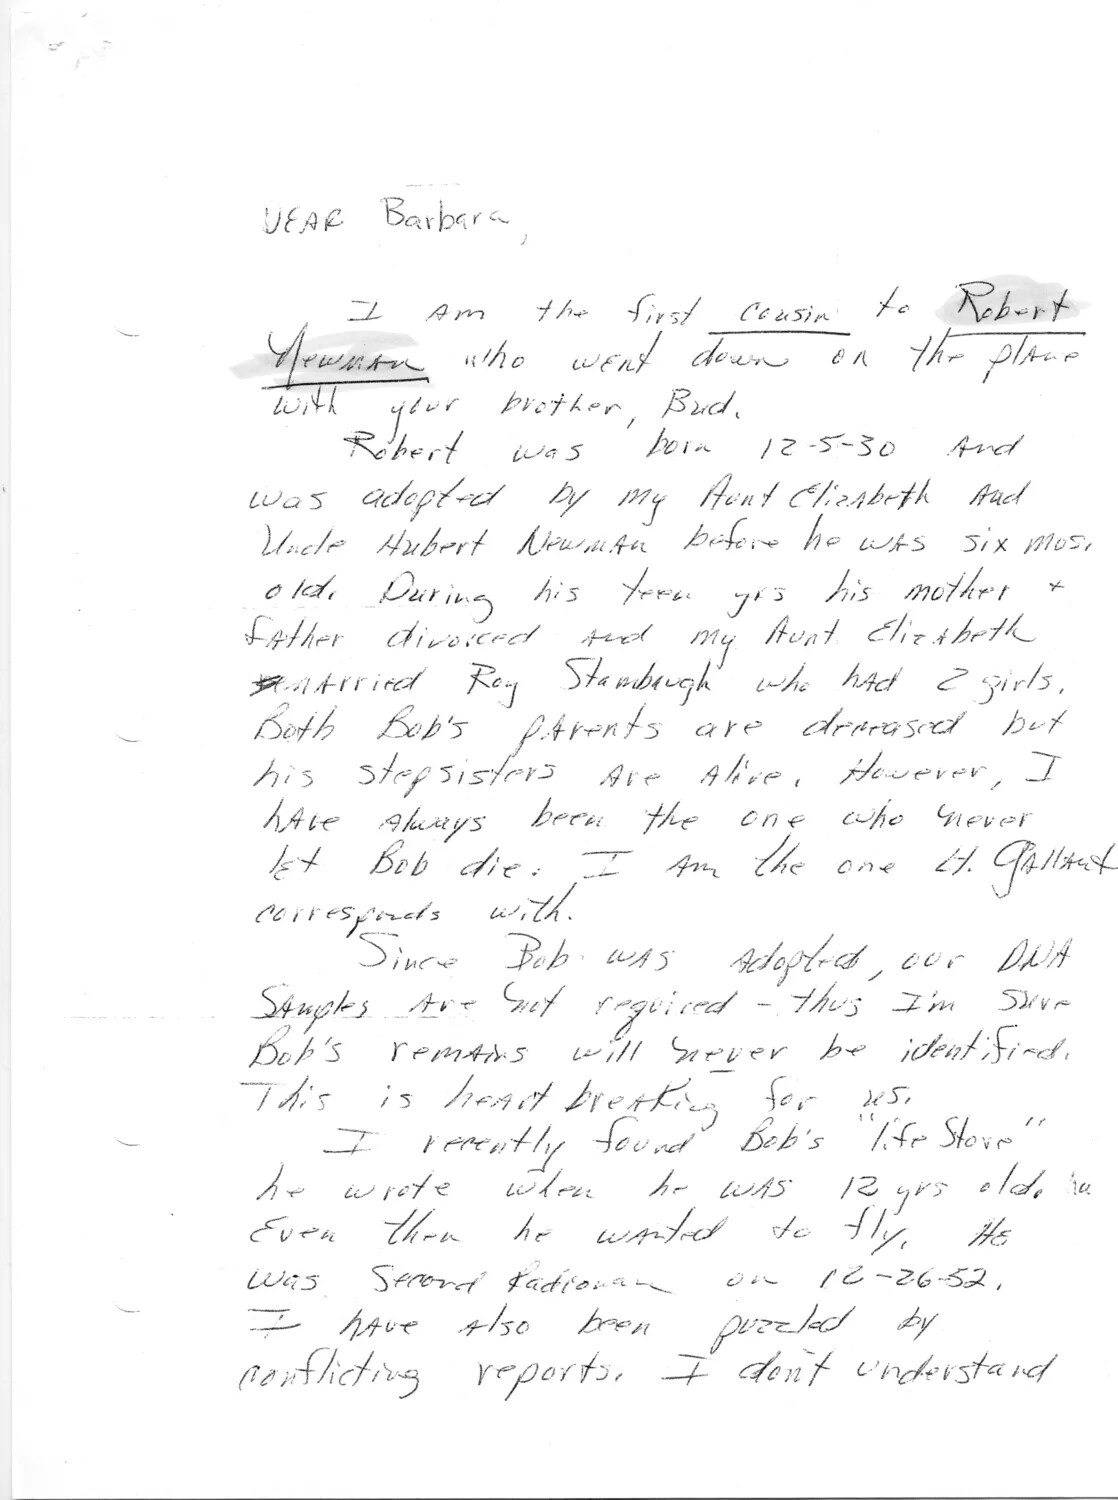 DEAR Barbara,
I Am the first cousin to Robert
Newman who went down on the plane
with your brother, Bud.
Robert was born 12-5-30 And
was adopted by my Aunt Elizabeth And
Uncle Hubert Newman before he was six mos.
old. During his teen yrs his mother +
father divorced and my Aunt Elizabeth
married Roy Stambaugh who had 2 girls.
Both Bob's parents are deceased but
his stepsisters are alive. However, I
have always been the one who never
let Bob die. I am the one Lt. Gallant
corresponds with.
Since Bob was adopted, our DNA
samples are not required - thus I'm sure
Bob's remains will never be identified.
This is heart breaking for us.
I recently found Bob's "life Store"
he wrote when he was 12 yrs old.
Even then he wanted to fly. He
was Second Radioman on 12-26-52.
I have also been puzzled by
conflicting reports. I don't understand